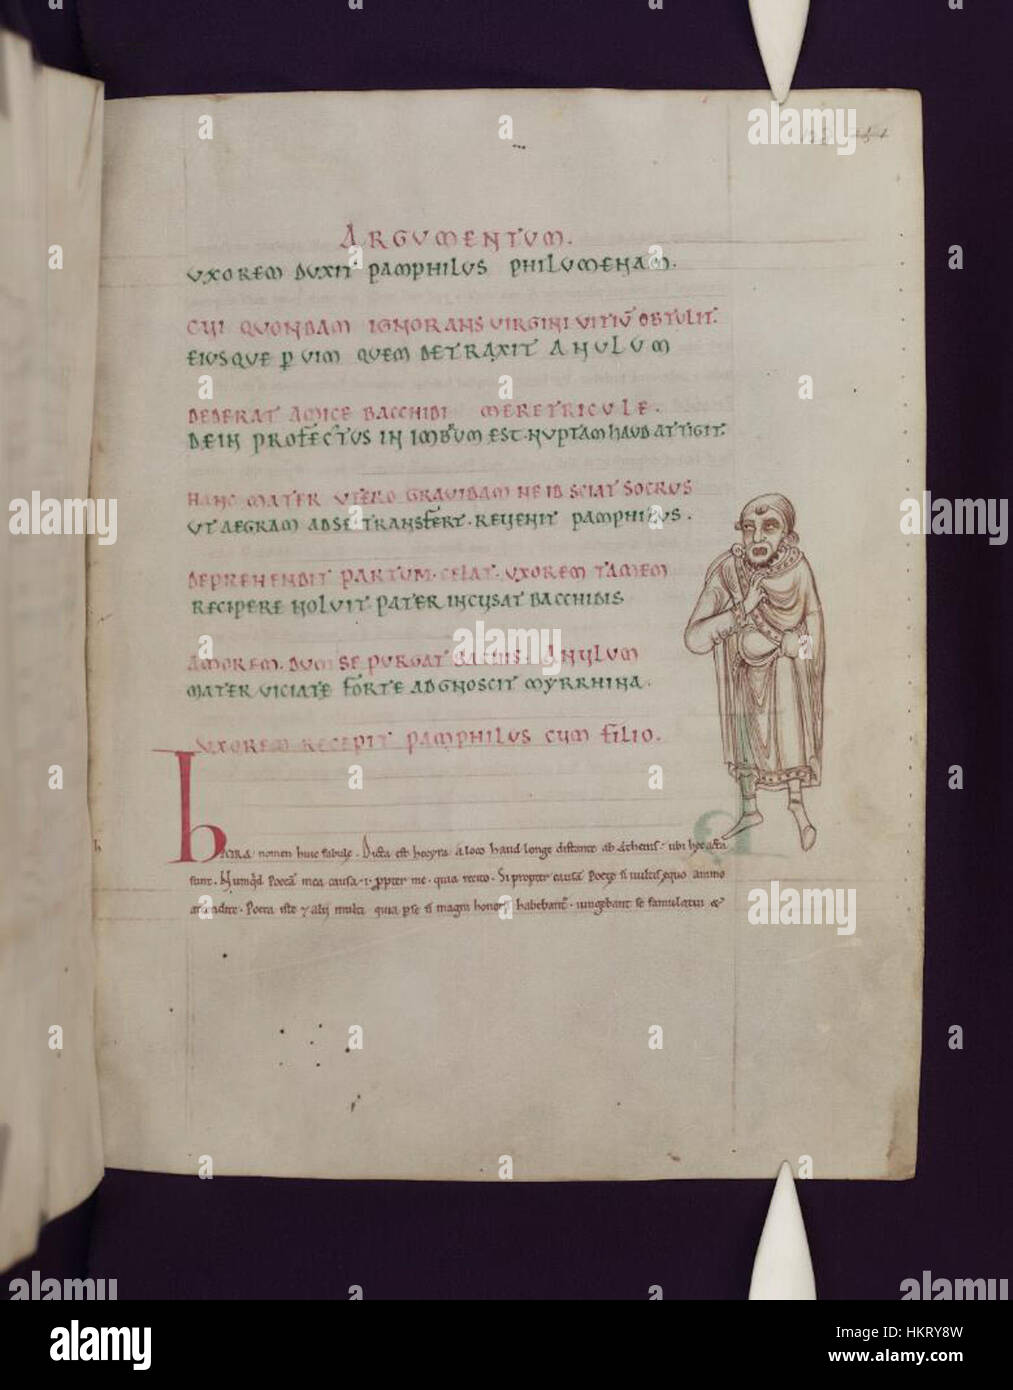 ARGUMENTUM.
UXOREM DUXIT PAMPHILUS PHILUMENAM.
CUI QUONDAM IGNORANS VIRGINI VITIŪ OBTULIT.
EIUSQUE P VIM QUEM DETRAXIT ANULUM
DEDERAT AMICE BACCHIDI MERETRICULE.
DEIN PROFECTUS IN IMBRUM EST. NUPTAM HAUD ATTIGIT.
HANC MATER UTERO GRAVIDAM NE ID SCIAT SOCRUS
UT AEGRAM AD SE TRANSFERT. REVENIT PAMPHILUS.
DEPREHENDIT PARTUM. CELAT. UXOREM TAMEM
RECIPERE NOLUIT. PATER INCUSAT BACCHIDIS
AMOREM. DUM SE PURGAT BACHIS. ANULUM
MATER VICIATE FORTE ADGNOSCIT MYRRHINA.
UXOREM RECEPIT PAMPHILUS CUM FILIO.
nomen huic fabule. Dicta est hecyra a loco haud longe distante ab Athenis. ubi hec acta
sunt. Numqd Poeta mea causa .i. ppter me. quia recito. Si propter causā Poete si vultis equo animo
attendite. Poeta iste 7 alij multi quia pse si magni honoris habebant. iungebant se famulatui &
122
alamy
Image ID: HKRY8W
www.alamy.com